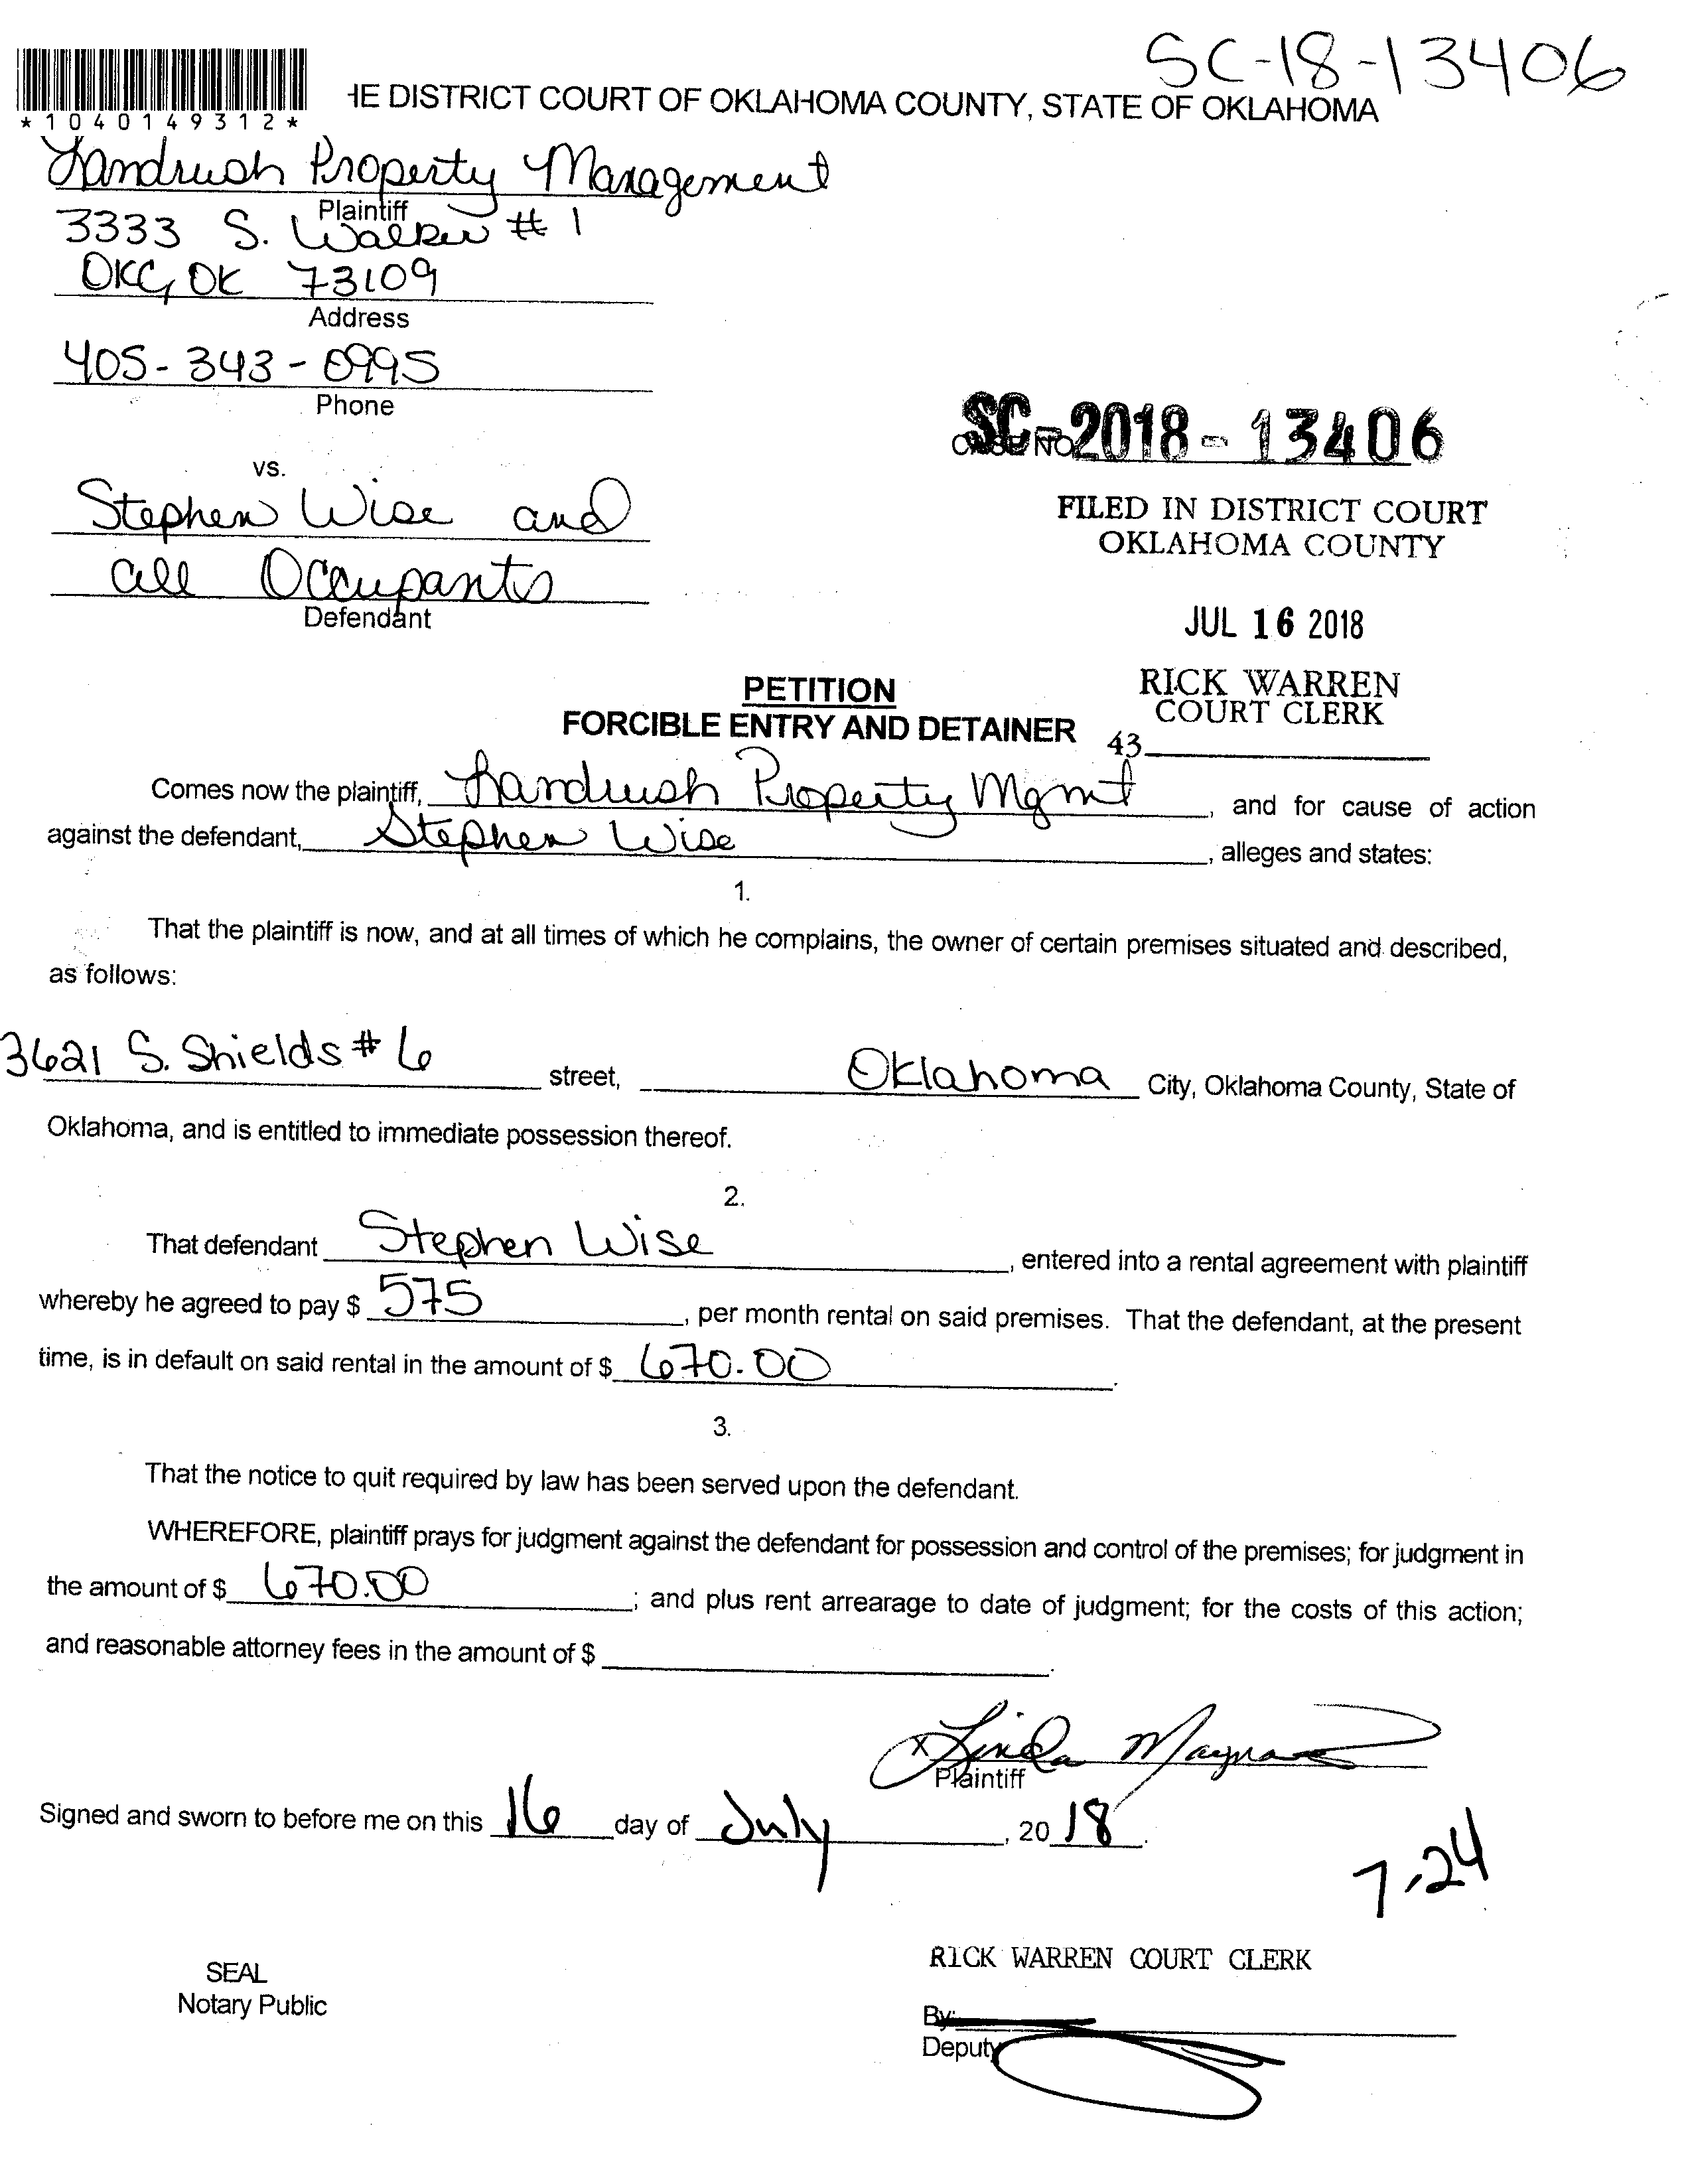 SC-18-13406
*1040149312*
HE DISTRICT COURT OF OKLAHOMA COUNTY, STATE OF OKLAHOMA
Landrush Property Management
Plaintiff
3333 S. Walker # 1
OKC, OK 73109
Address
405-343-0995
Phone
SC-2018-13406
CASE NO.
vs.
Stephen Wise and
all Occupants
Defendant
FILED IN DISTRICT COURT
OKLAHOMA COUNTY
JUL 16 2018
RICK WARREN
COURT CLERK
43
PETITION
FORCIBLE ENTRY AND DETAINER
Comes now the plaintiff, Landrush Property Mgmt, and for cause of action
against the defendant, Stephen Wise, alleges and states:
1.
That the plaintiff is now, and at all times of which he complains, the owner of certain premises situated and described,
as follows:
3621 S. Shields # 6 street, Oklahoma City, Oklahoma County, State of
Oklahoma, and is entitled to immediate possession thereof.
2.
That defendant Stephen Wise, entered into a rental agreement with plaintiff
whereby he agreed to pay $ 575, per month rental on said premises. That the defendant, at the present
time, is in default on said rental in the amount of $ 670.00.
3.
That the notice to quit required by law has been served upon the defendant.
WHEREFORE, plaintiff prays for judgment against the defendant for possession and control of the premises; for judgment in
the amount of $ 670.00; and plus rent arrearage to date of judgment; for the costs of this action;
and reasonable attorney fees in the amount of $.
x Linda
Plaintiff
Signed and sworn to before me on this 16 day of July, 2018.
7.24
RICK WARREN COURT CLERK
SEAL
Notary Public
By:
Deputy